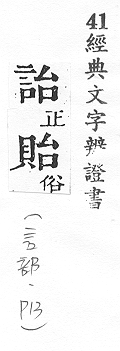 41經典文字辨證書
詒正貽俗
(言部·P13)